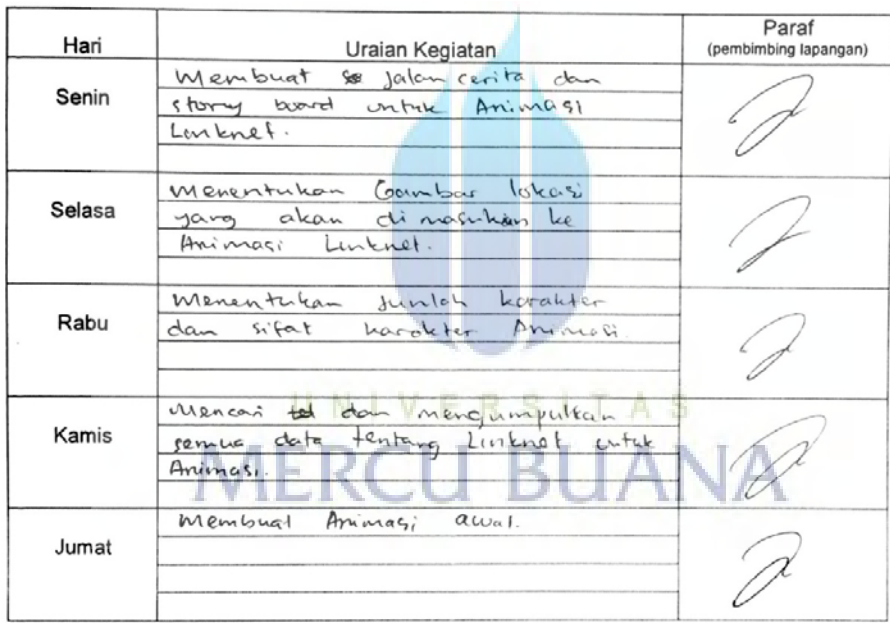 Hari Uraian Kegiatan Paraf
(pembimbing lapangan)
Senin
Membuat jalan cerita dan
story board untuk Animasi
Linknet.
Selasa
Menentukan Gambar lokasi
yang akan di masukan ke
Animasi Linknet.
Rabu
Menentukan Jumlah karakter
dan sifat karakter Animasi.
Kamis
Mencari dan mengumpulkan
semua data tentang Linknet untuk
Animasi.
Jumat
Membuat Animasi awal.
UNIVERSITAS
MERCU BUANA